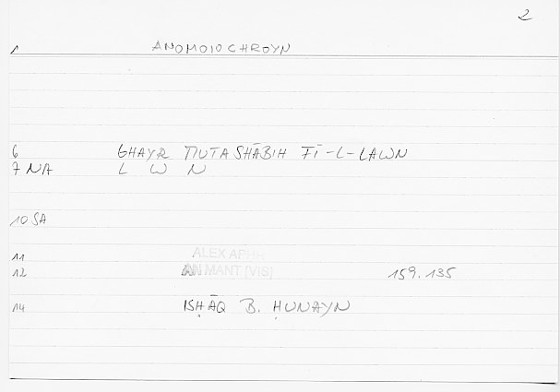 2
1 ANOMOIOCHROYN
6 GHAYR MUTASHĀBIH FĪ-L-LAWN
7 NA L W N
10 SA
11 ALEX APH
12 AN MANT [VIS] 159.135
14 ISḤĀQ B. ḤUNAYN